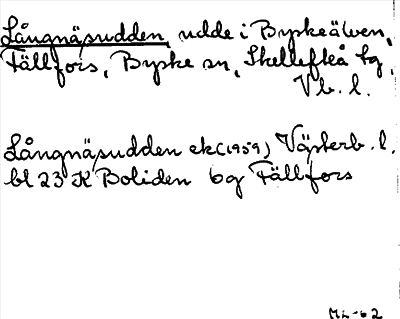 Långnäsudden, udde i Byskeälven,
Fällfors, Byske sn, Skellefteå tg,
Vb. l.
Långnäsudden ek (1959) Västerb. l.
bl 23 K Boliden 6g Fällfors